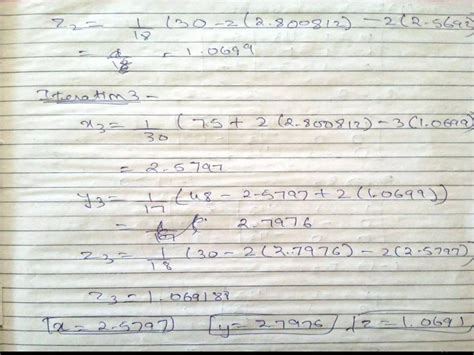 z2 = 1/18 (30 - 2(2.800812) - 2(2.569
= = 1.0699
Iteration 3 -
x3 = 1/30 (75 + 2(2.800812) - 3(1.0699)
= 2.5797
y3 = 1/17 (48 - 2.5797 + 2(1.0699))
= 2.7976
z3 = 1/18 (30 - 2(2.7976) - 2(2.5797)
z3 = 1.069188
[x = 2.5797] [y = 2.7976, [z = 1.0691